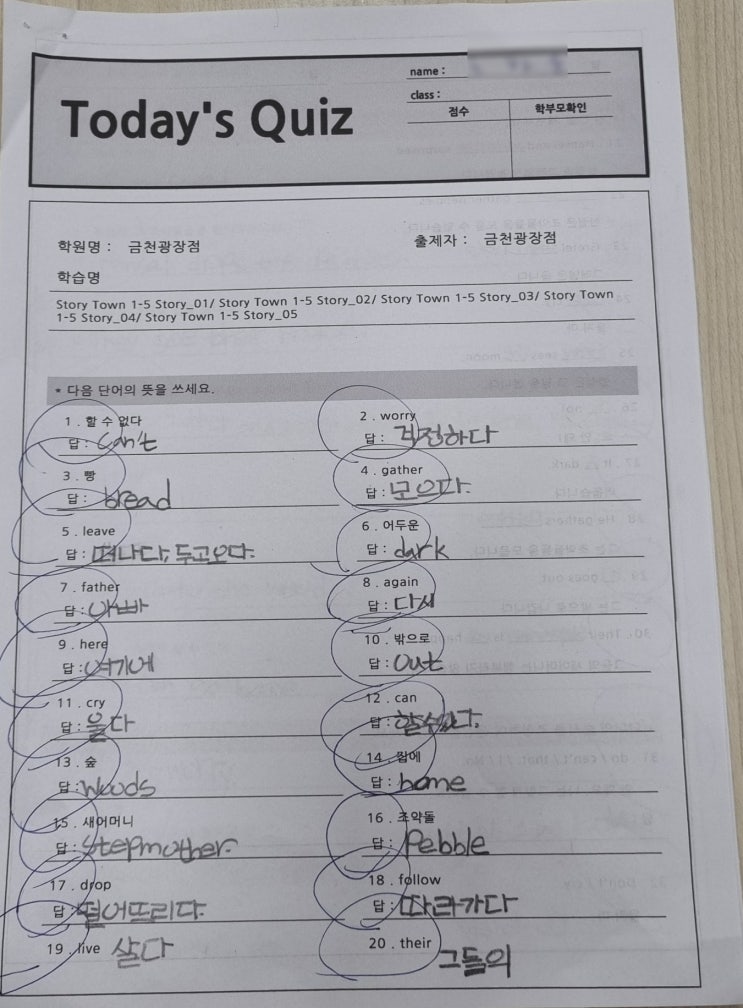 name :
class :
Today's Quiz
점수 학부모확인
학원명 : 금천광장점 출제자 : 금천광장점
학습명
Story Town 1-5 Story_01/ Story Town 1-5 Story_02/ Story Town 1-5 Story_03/ Story Town
1-5 Story_04/ Story Town 1-5 Story_05
* 다음 단어의 뜻을 쓰세요.
1 . 할 수 없다 2 . worry
답 : can't 답 : 걱정하다
3 . 빵 4 . gather
답 : bread 답 : 모으다.
5 . leave 6 . 어두운
답 : 떠나다, 두고오다. 답 : dark
7 . father 8 . again
답 : 아빠 답 : 다시
9 . here 10 . 밖으로
답 : 여기에 답 : out
11 . cry 12 . can
답 : 울다 답 : 할수있다.
13 . 숲 14 . 집에
답 : woods 답 : home
15 . 새어머니 16 . 조약돌
답 : stepmother. 답 : Pebble
17 . drop 18 . follow
답 : 떨어뜨리다. 답 : 따라가다
19 . live 살다 20 . their 그들의